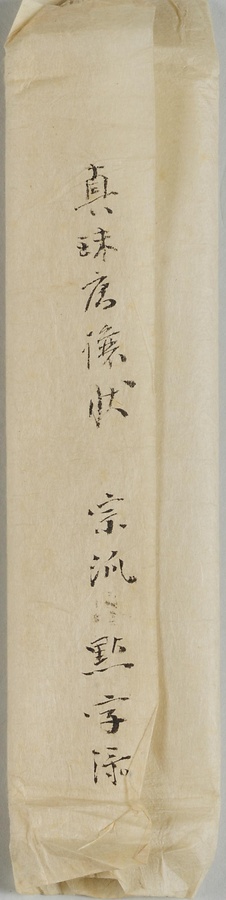 真珠庵讓状 宗派點字添